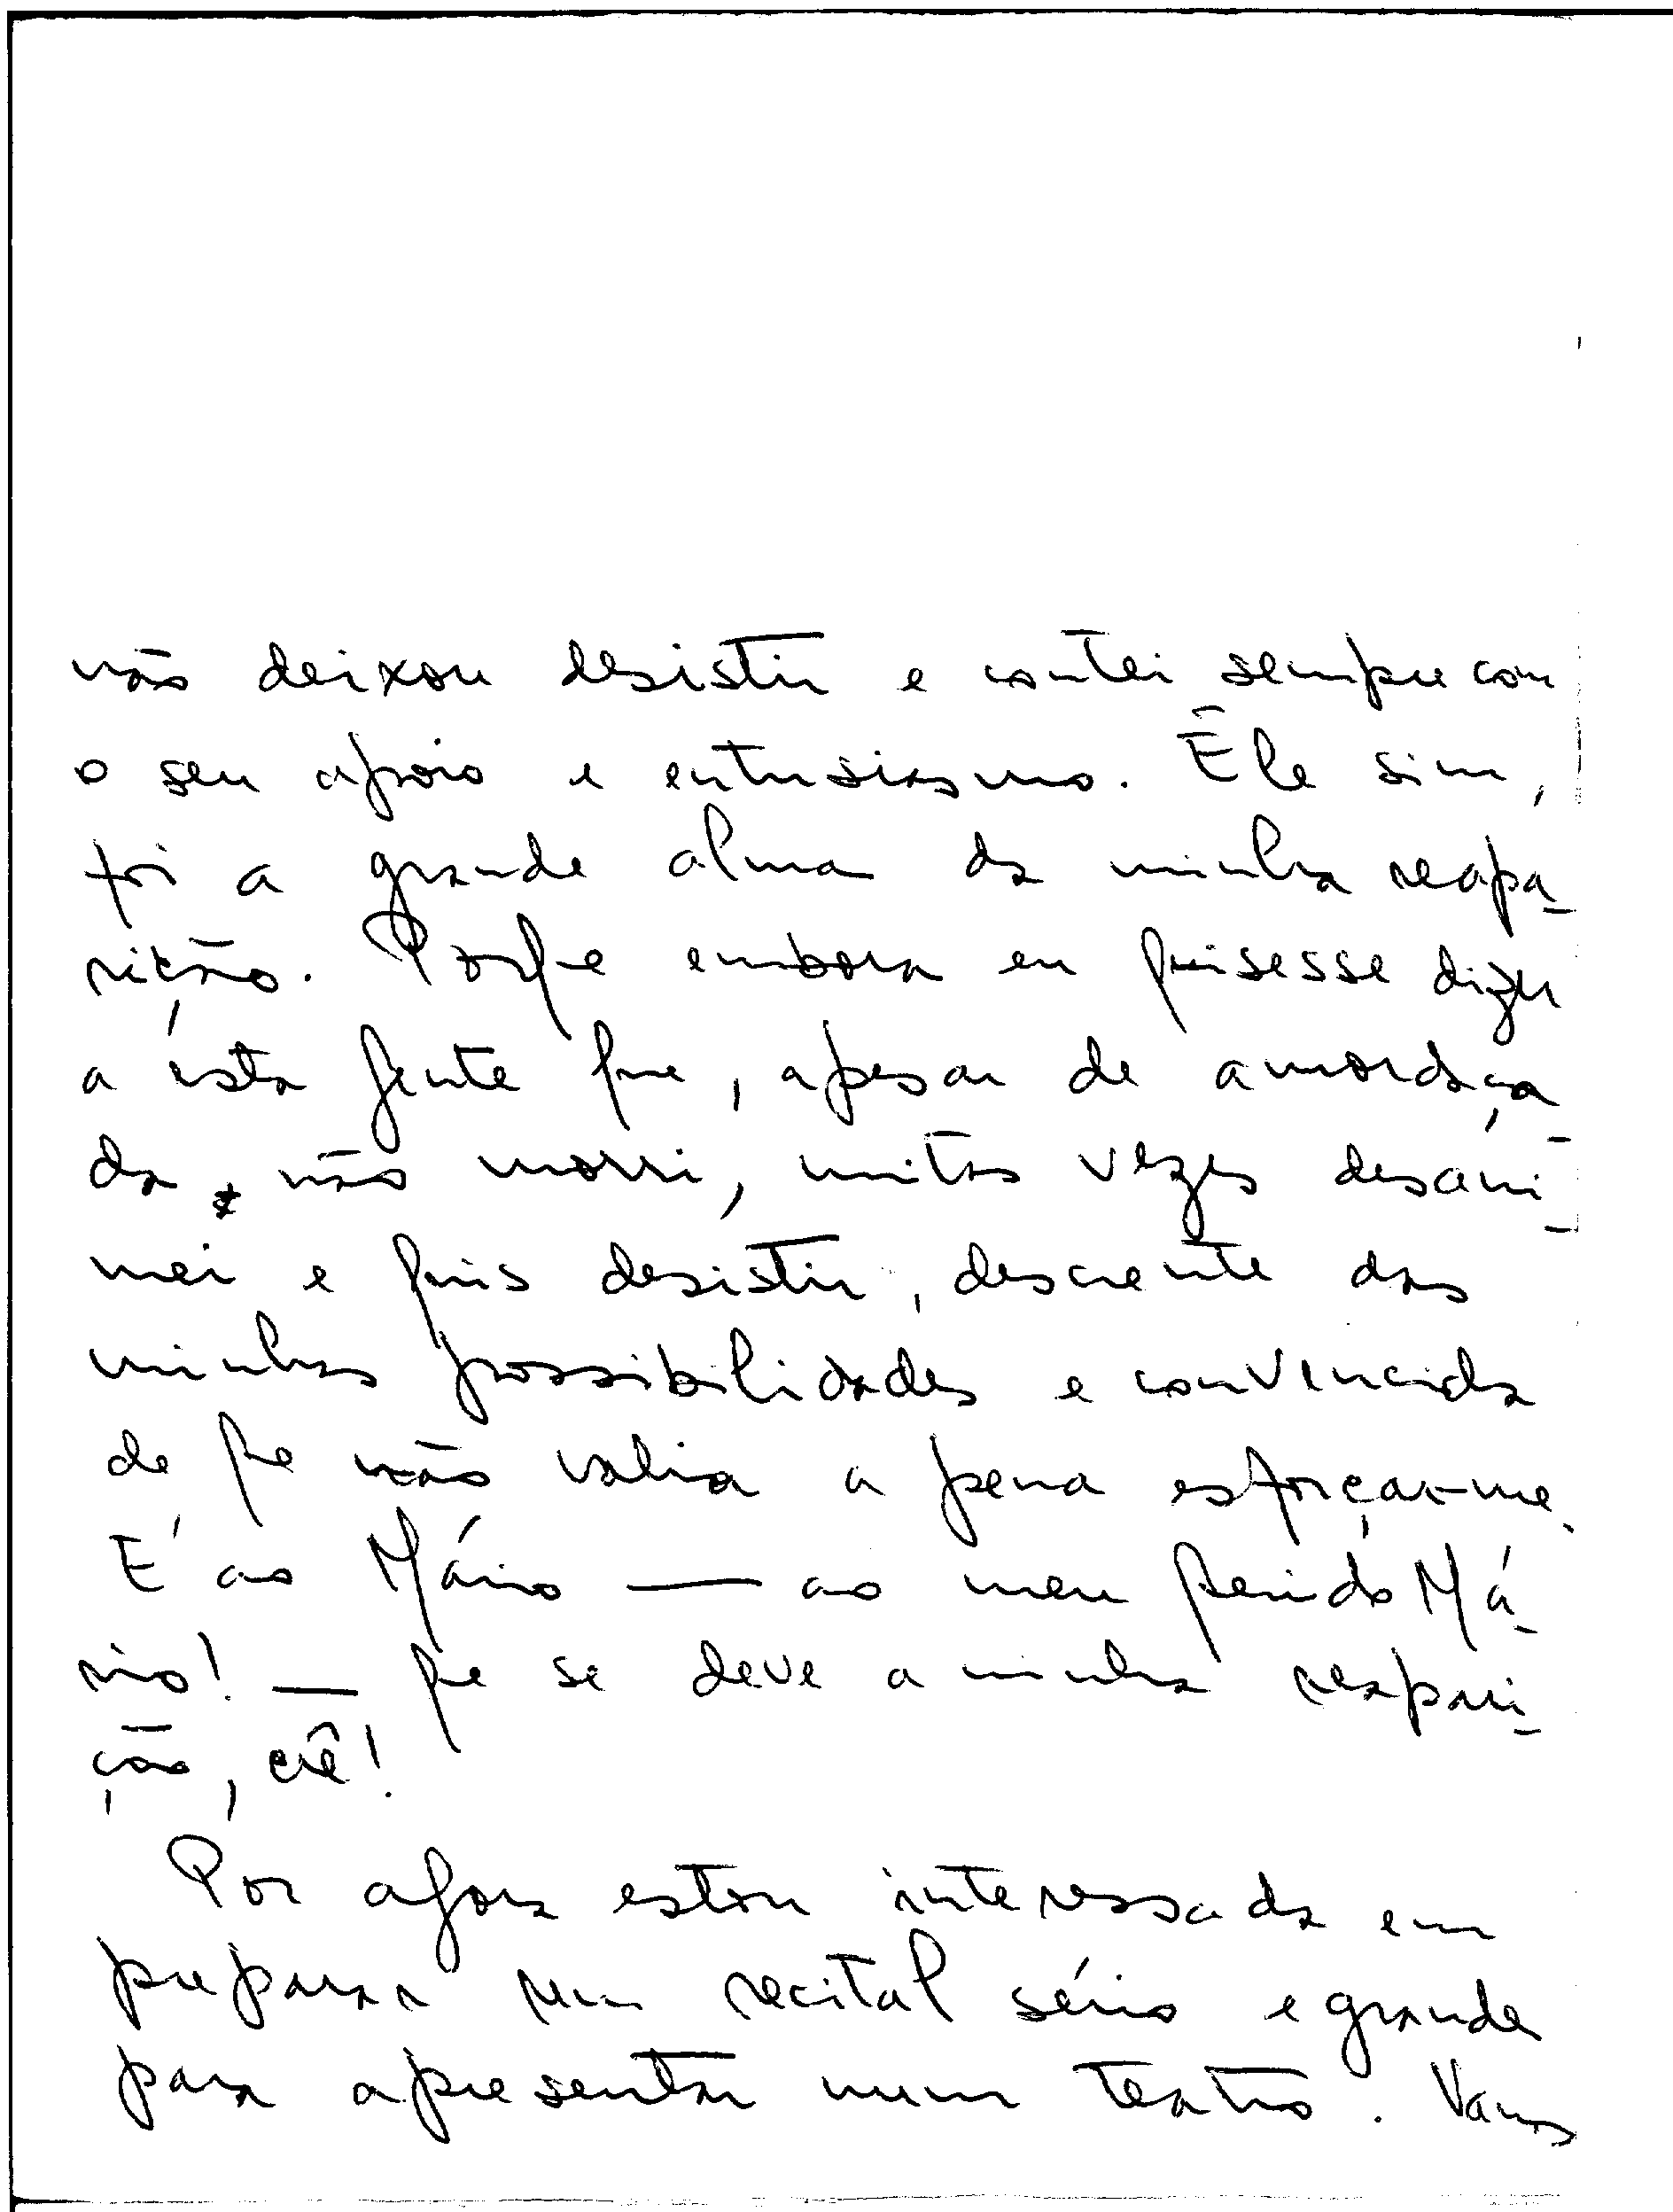 não deixou desistir e contei sempre com
o seu apoio e entusiasmo. Êle sim,
foi a grande alma da minha reapa-
rição. Porque embora eu quisesse dizer
a esta gente que, apesar de amordaça-
da, não morri, muitas vezes desani-
mei e quis desistir, descrente das
minhas possibilidades e convencida
de que não valia a pena esforçar-me.
E' ao Mário — ao meu querido Má-
rio! — que se deve a minha reapari-
ção, crê!
Por agora estou interessada em
preparar um recital sério e grande
para apresentar num teatro. Vamos